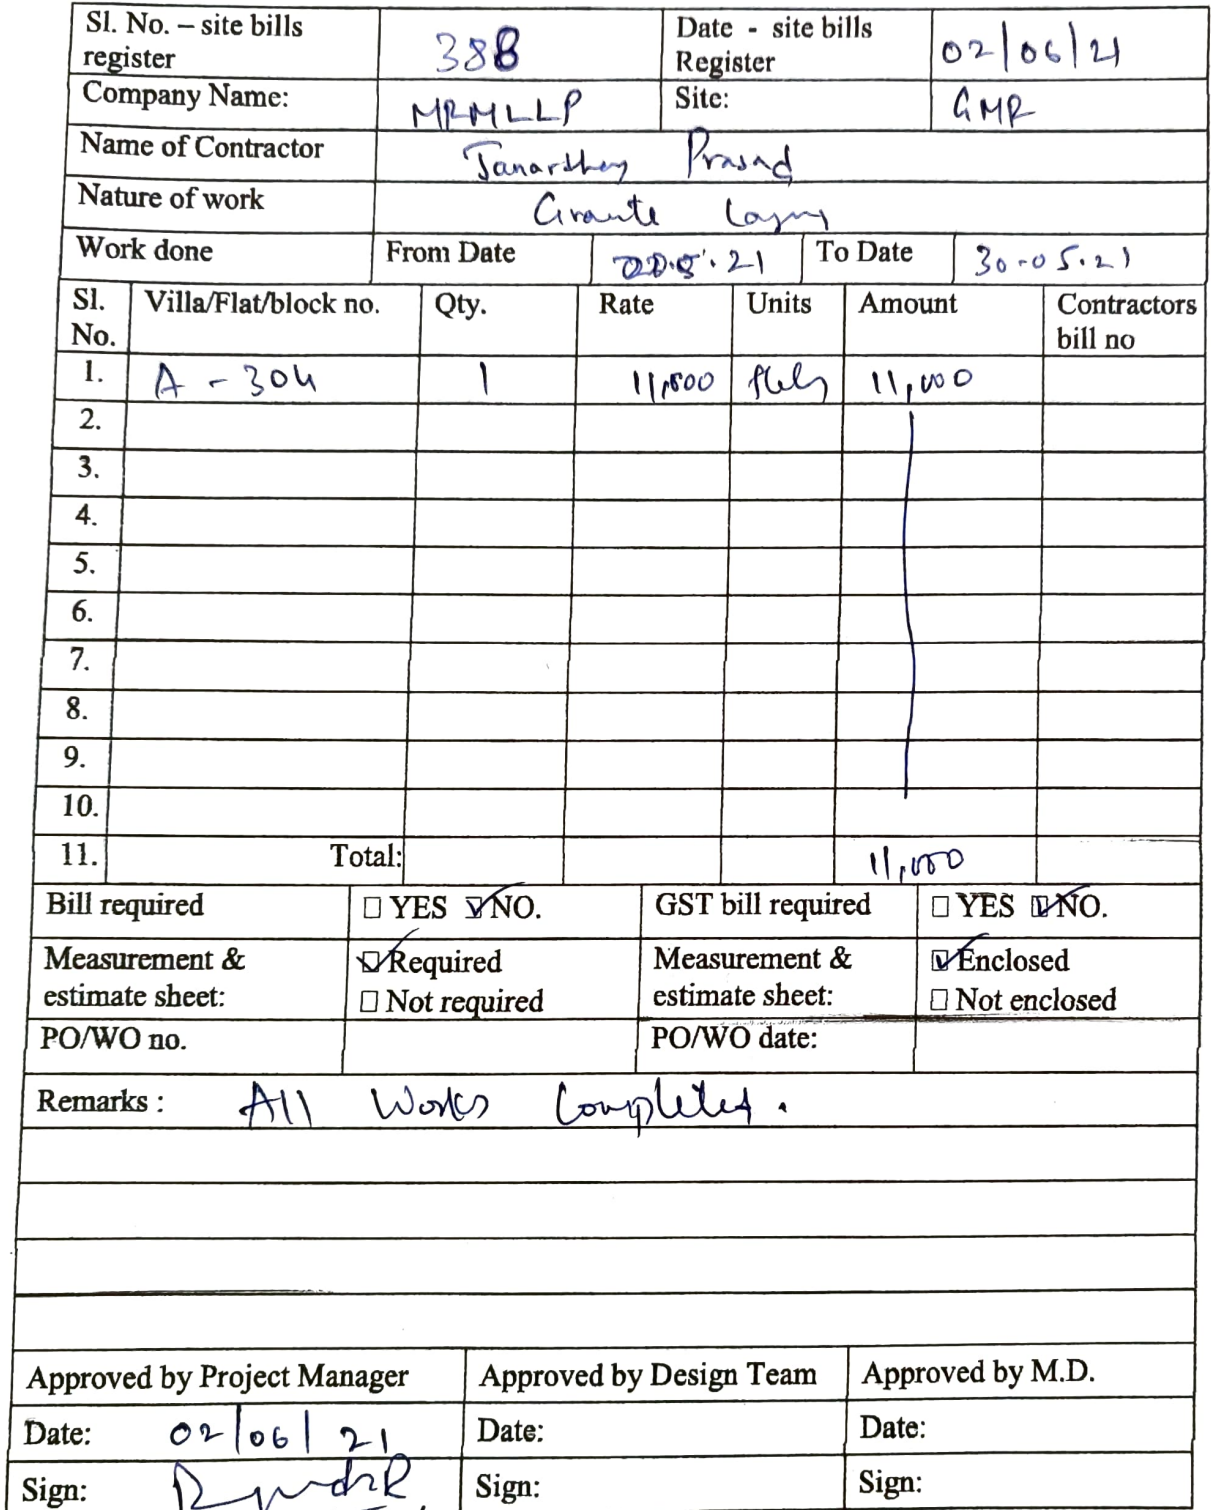 Sl. No. – site bills register 388 Date - site bills Register 02/06/21
Company Name: MRMLLP Site: GMR
Name of Contractor Prasad
Nature of work
Work done From Date To Date 30-05.21
Sl. No. Villa/Flat/block no. Qty. Rate Units Amount Contractors bill no
1. A - 304 1 11,000 11,000
2.
3.
4.
5.
6.
7.
8.
9.
10.
11. Total: 11,000
Bill required ☐ YES ☑ NO. GST bill required ☐ YES ☑ NO.
Measurement & estimate sheet: ☑ Required Measurement & estimate sheet: ☑ Enclosed
☐ Not required ☐ Not enclosed
PO/WO no. PO/WO date:
Remarks : All Works Completed.
Approved by Project Manager Approved by Design Team Approved by M.D.
Date: 02/06/21 Date: Date:
Sign: Sign: Sign: